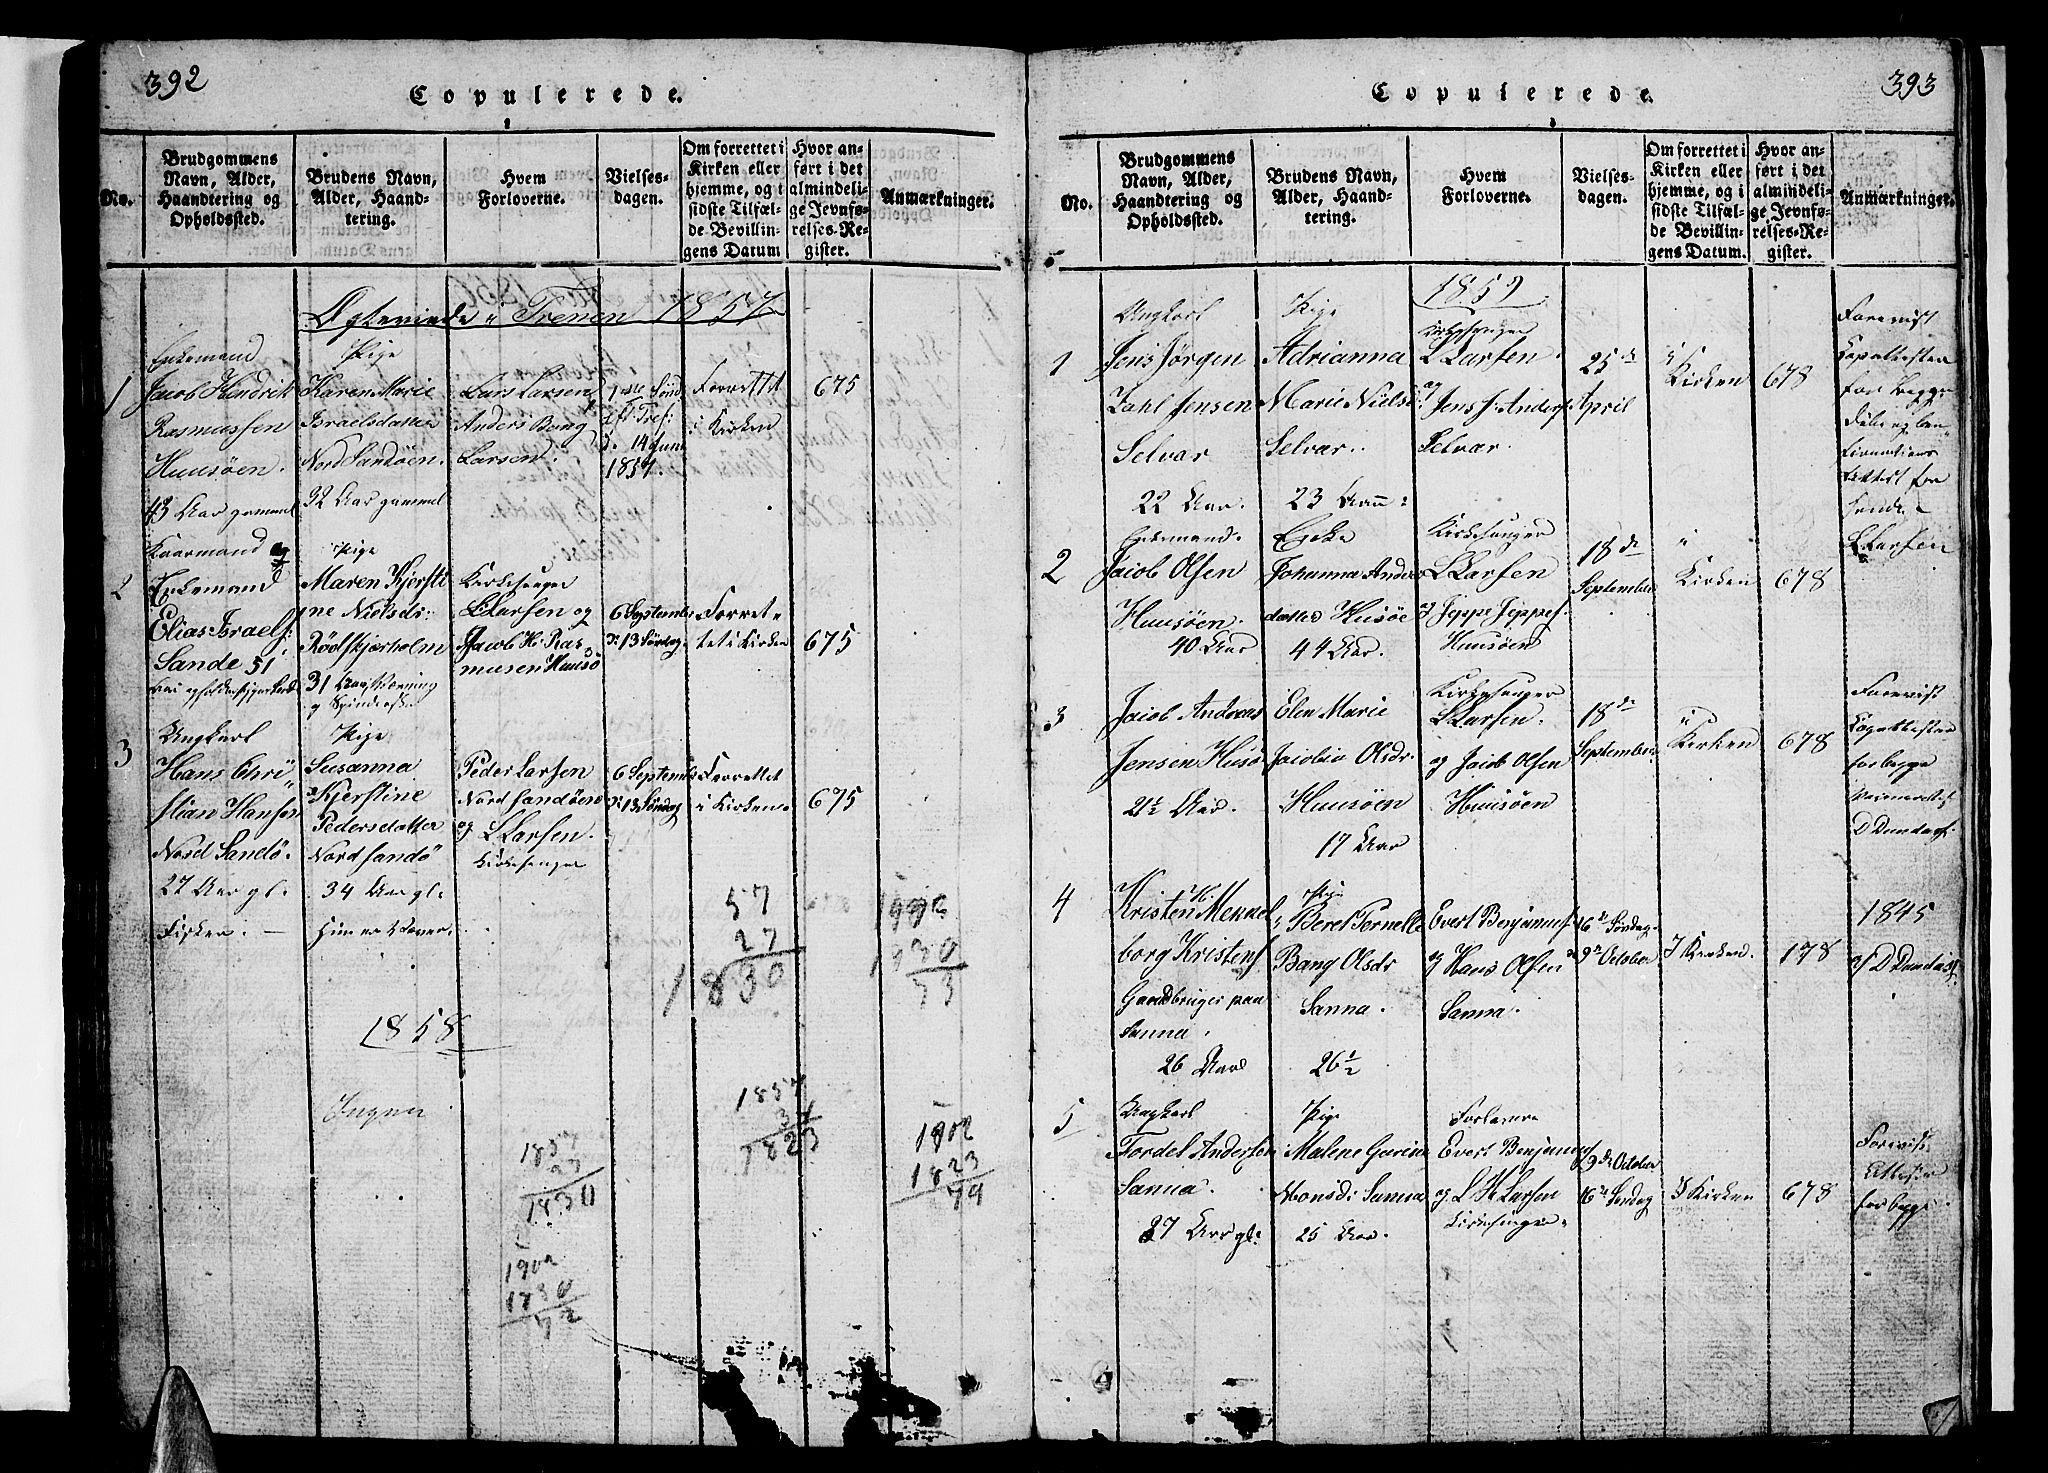 392
Copulerede.
No.
Brudgommens
Navn, Alder,
Haandtering og
Opholdssted.
Brudens Navn,
Alder, Haand-
tering.
Hvem
Forloverne.
Vielses-
dagen.
Om forrettet i
Kirken eller
hjemme, og i
sidste Tilfæl-
de Bevillin-
gens Datum
Hvor an-
ført i det
almindeli-
ge Jevnfø-
relses-Re-
gister.
Anmærkninger.
i Trenen 1857
1
Enkemand
Jacob Hendrik
Rasmussen
Huusøen.
43 Aar gammel
Pige
Karen Marie
Israelsdatter
Nord Sandøen.
32 Aar gammel
Lars Larsen
Anders Bang
Larsen.
1ste Sønd
eft Tref:
d. 14 Juni
1857.
Forrettet
i Kirken
675
2
Kaarmand og
Enkemand
Elias Israels:
Sande 51
Pige
Maren Kjersti
ne Nielsdr:
Rödskjærholm
31 Aar
g Spinderske
Kirkesanger
LLarsen og
Jacob H. Ras
musen Huusö
6 Septembr
D: 13 Söndag
Forret-
tet i Kirken
675
3
Ungkarl
Hans Chri
stian Hansen
Nord Sandö.
27 Aar gl.
Fisker.
Pige
Susanna
Kjerstine
Pedersdatter
Nord sandö
34 Aar gl.
Peder Larsen
Nord sandøen
og LLarsen.
Kirkesanger
6 Septembr
D: 13 Söndag
Forrettet
i Kirken.
675
57
27
1830
1902
1830
73
1858
Ingen
1857
34
1823
1902
1823
79
1857
27
1830
1902
1830
72
393
Copulerede.
No.
Brudgommens
Navn, Alder,
Haandtering og
Opholdssted.
Brudens Navn,
Alder, Haand-
tering.
Hvem
Forloverne.
Vielses-
dagen.
Om forrettet i
Kirken eller
hjemme, og i
sidste Tilfæl-
de Bevillin-
gens Datum.
Hvor an-
ført i det
almindeli-
ge Jevnfø-
relses-Re-
gister.
Anmærkninger.
1859
1
Ungkarl
Jens Jörgen
Zahl Jensen
Selvær
22 Aar.
Pige
Adrianna
Marie Niels
Selvær.
23 Aar:
Kirkesanger
LLarsen.
og
Jens J. Anders.
Selvær.
25de
April
i
Kirken
678
Forevist
Copattester
for begge
Dele og Con
firmations
Attest for
LLarsen
2
Enkemand.
Jacob Olsen
Huusöen.
40 Aar
Enke
Johanna Anders
datter Husöe
44 Aar.
Kirkesanger
LLarsen
og Jeppe Jeppes.
Huusöen
18de
September
i
Kirken
678
3
Jacob Andreas
Jensen Husö
21½ Aar.
Elen Marie
Jacobia Olsdr.
Huusöen
17 Aar
Kirkesanger
LLarsen.
og Jacob Olsen
Huusöen
18de
September.
i
Kirken
678
Forevist
Copattester
for begge
D Dundas.
4
Kristen H. Mekkel
borg Kristens.
Gaardbruger paa
Sanna.
26 Aar
Pige
Beret Pernelle
Bang Olsdr
Sanna.
26½
Evert Benjamins.
og Hans Olsen
Sanna.
16de Söndag
9de October
I Kirken.
178
1845
af D Dundas.
5
Ungkarl
Tordel Andersen
Sanna.
27 Aar gl.
Pige
Malene Garsia
Monsdr Sanna
25 Aar.
Forlovere
Evert Benjamins.
og L H Larsen
Kirkesanger.
9de October
16de Söndag
I Kirken
678
Forevist
Attester
for begge.